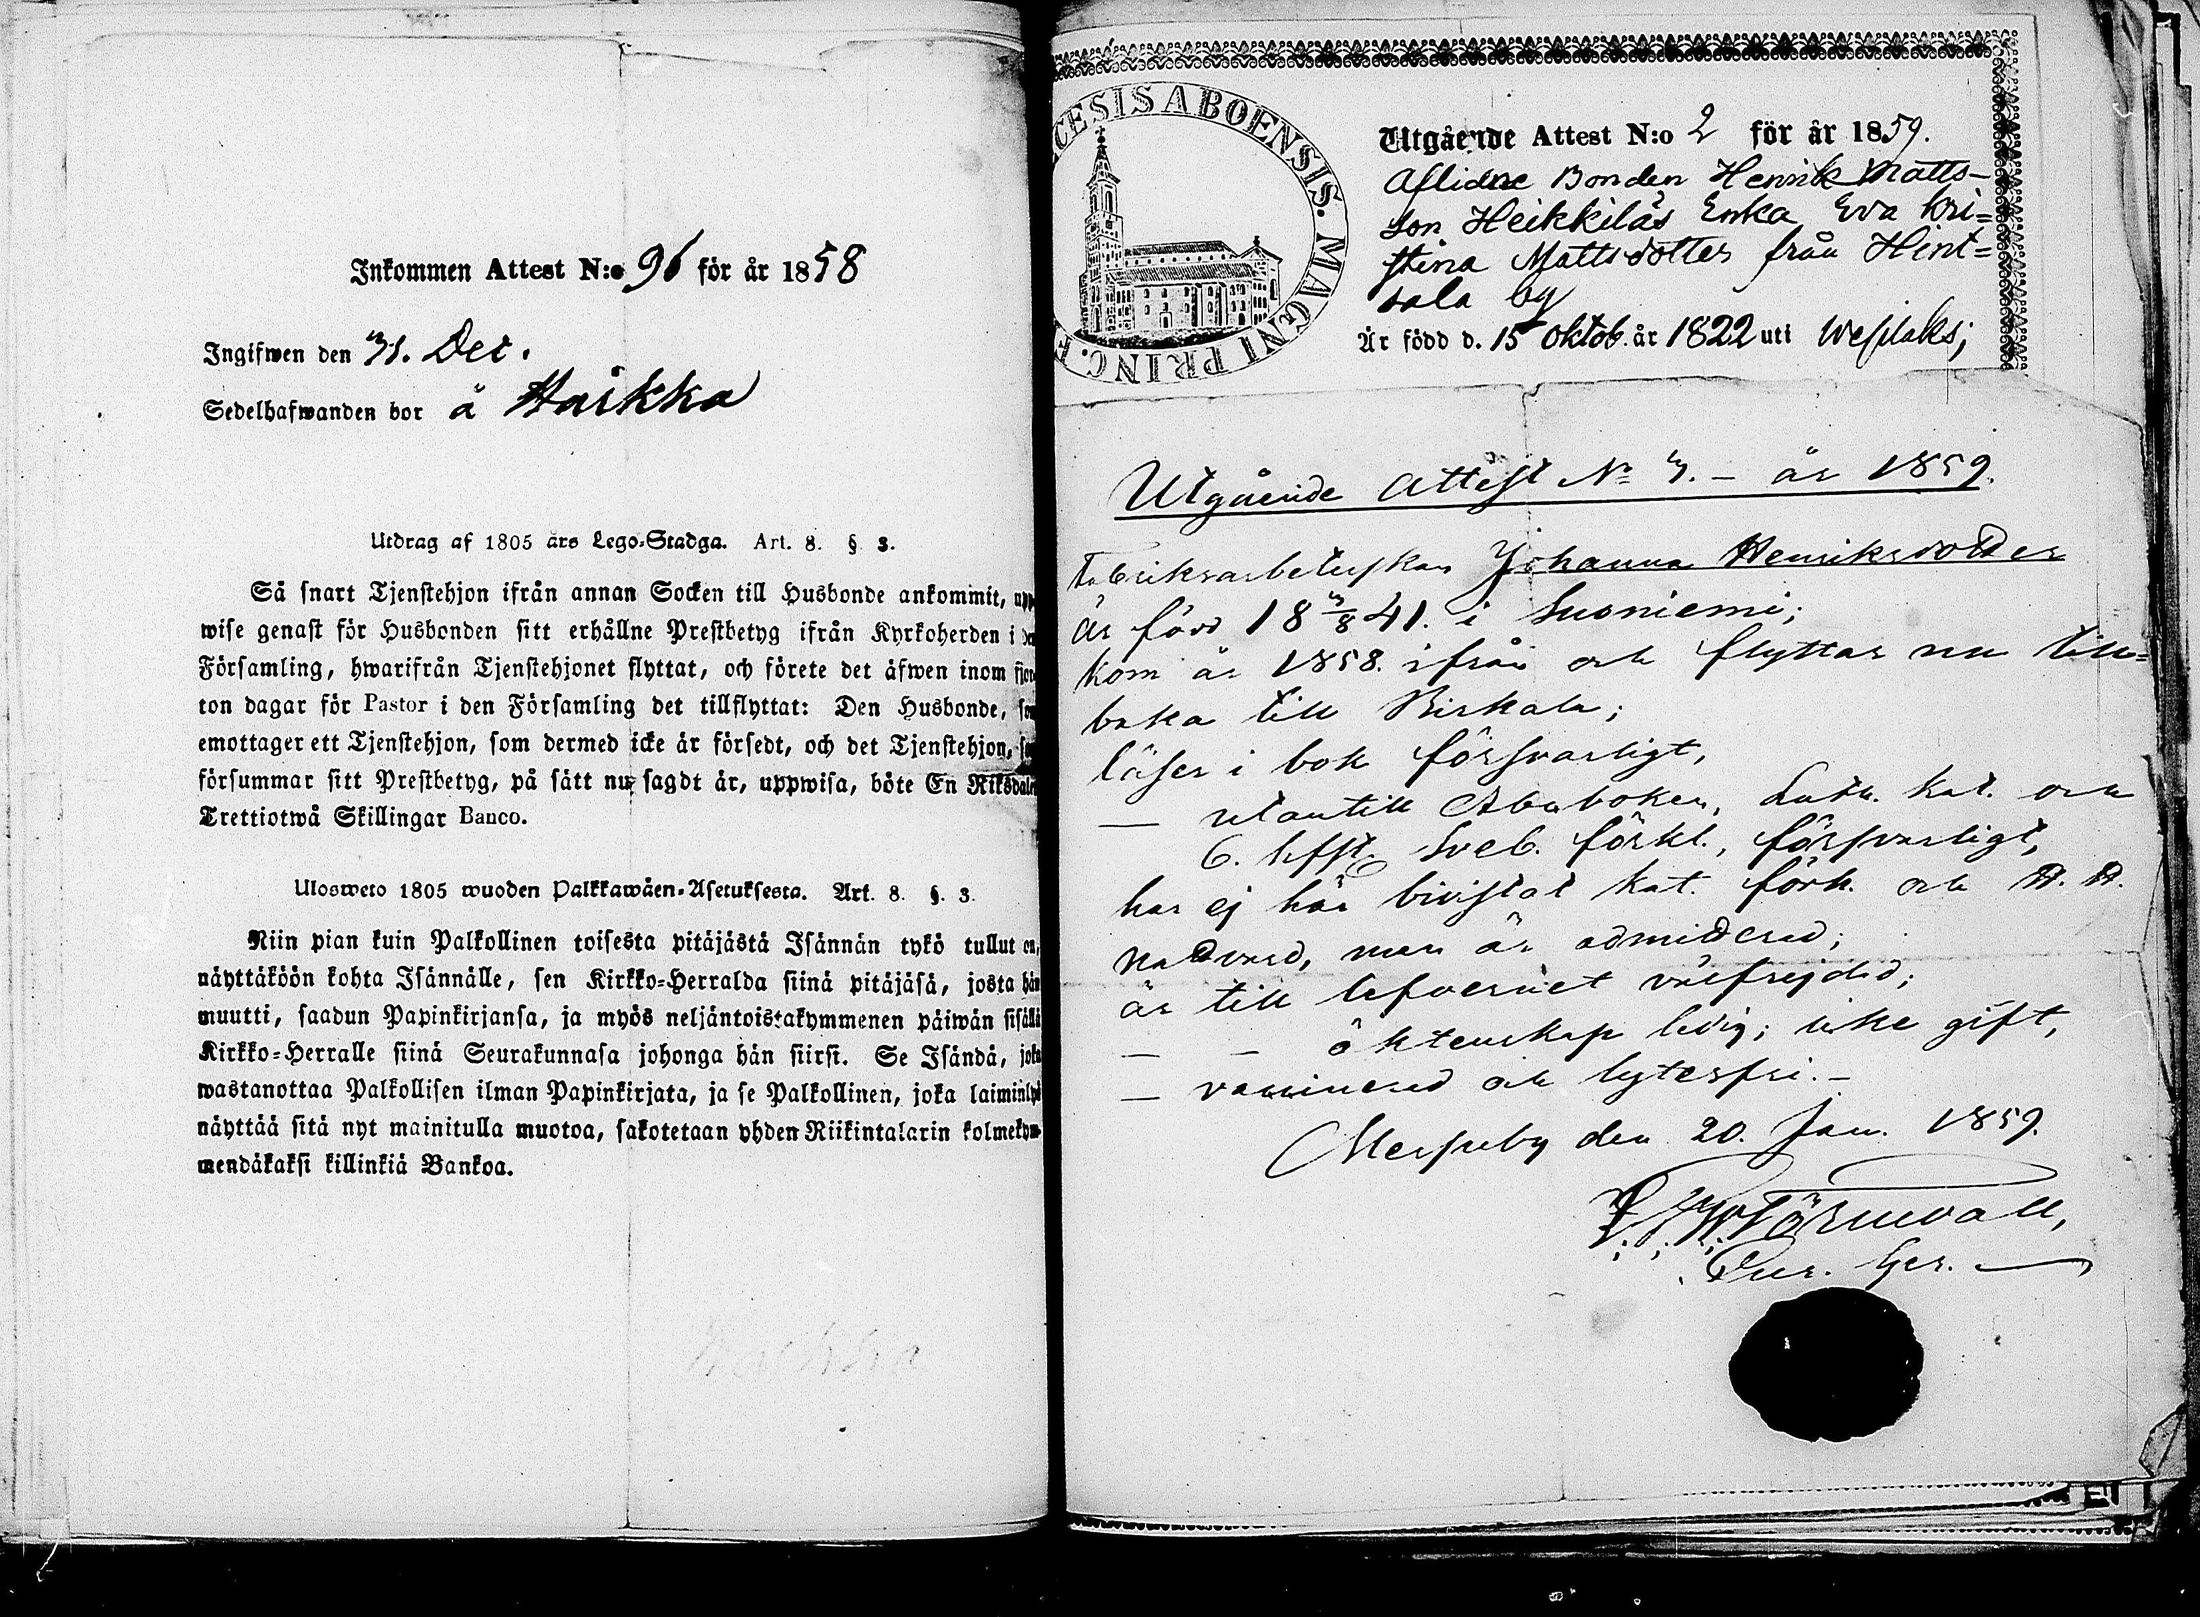 Inkommen Attest N:o 96 för år 1858
Ingifwen den 31. Dec.
Sedelhafwanden bor å Haikka
Utdrag af 1805 års Lego-Stadga. Art. 8. § 3.
Så snart Tjenstehjon ifrån annan Socken till Husbonde ankommit, upp
wise genast för Husbonden sitt erhållne Prestbetyg ifrån Kyrkoherden i den
Församling, hwarifrån Tjenstehjonet flyttat, och förete det äfwen inom fjor
ton dagar för Pastor i den Församling det tillflyttat: Den Husbonde, som
emottager ett Tjenstehjon, som dermed icke är försedt, och det Tjenstehjon, som
försummar sitt Prestbetyg, på sätt nu sagdt är, uppwisa, böte En Riksdaler
Trettiotwå Skillingar Banco.
Ulosweto 1805 wuoden Palkkawäen-Asetuksesta. Art. 8. §. 3.
Niin pian kuin Palkollinen toisesta pitäjästä Isännän tykö tullut on,
näyttäköön kohta Isännälle, sen Kirkko-Herralda siinä pitäjäsä, josta hän
muutti, saadun Papinkirjansa, ja myös neljäntoistakymmenen päiwän sisällä
Kirkko-Herralle siinä Seurakunnasa johonga hän siirsi. Se Isändä, joka
wastanottaa Palkollisen ilman Papinkirjata, ja se Palkollinen, joka laiminlyö
näyttää sitä nyt mainitulla muotoa, sakotetaan yhden Riikintalarin kolmekym-
mendäkaksi killinkiä Bankoa.
CESIS ABOENSIS. MAGNI PRINC. F
Utgående Attest N:o 2 för år 1859.
Aflidne Bonden Henrik Matts-
son Heikkiläs Enka Eva Kri=
stina Mattsdotter från Hint=
sala by
Är född d. 15 Oktob. år 1822 uti Wesilaks;
Utgående Attest No 3. - år 1859.
Fabriksarbeterskan Johanna Henriksdotter
är född 18 3/8 41. i Suoniemi;
kom år 1858. ifrån och flyttar nu till=
baka till Birkala;
läser i bok försvarligt,
— utantill Ababoken, Luth. Kat. och
Sveb. förkl., försvarligt,
har ej här bivistat kat. förh. och H. H.
nattvard, men är admitterad;
är till lefvernet välfrejdad;
— - äktenskap ledig; icke gift,
— vaccinerad och lytesfri. -
Messuby den 20. Jan. 1859.
Törnevall,